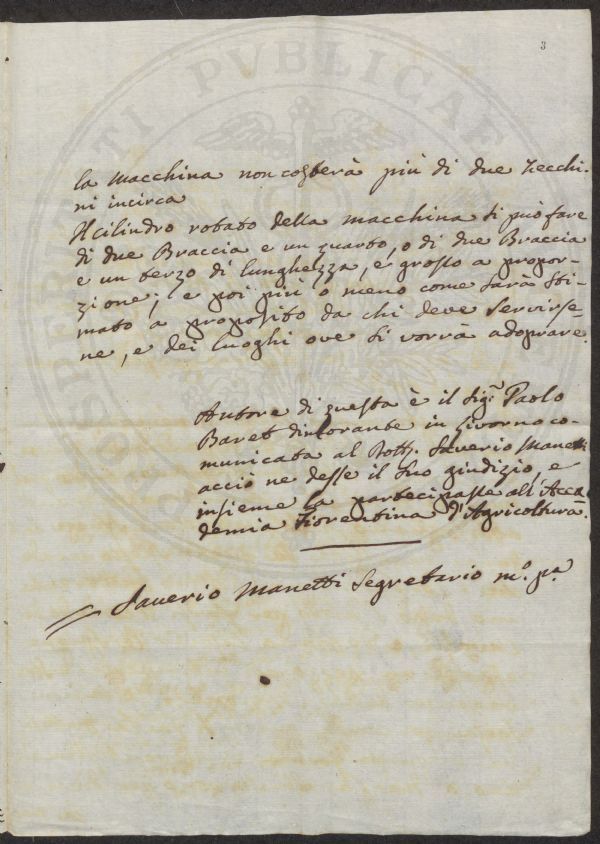 3
la macchina non costerà più di due zecchi-
ni incirca
Il cilindro rotato della macchina si può fare
di due Braccia e un quarto, o di due Braccia
e un terzo di lunghezza, e grosso a propor-
zione; e poi più o meno come sarà sti-
mato a proposito da chi deve servirse-
ne, e dei luoghi ove si vorrà adoprare.
Autore di questa è il Sigr. Paolo
Baret dimorante in Livorno co-
municata al Dott. Saverio Manetti
acciò ne desse il suo giudizio, e
insieme la partecipasse all'Acca
demia Fiorentina d'Agricoltura.
Saverio Manetti Segretario mo. pa.
PROSPERITATI PVBLICAE